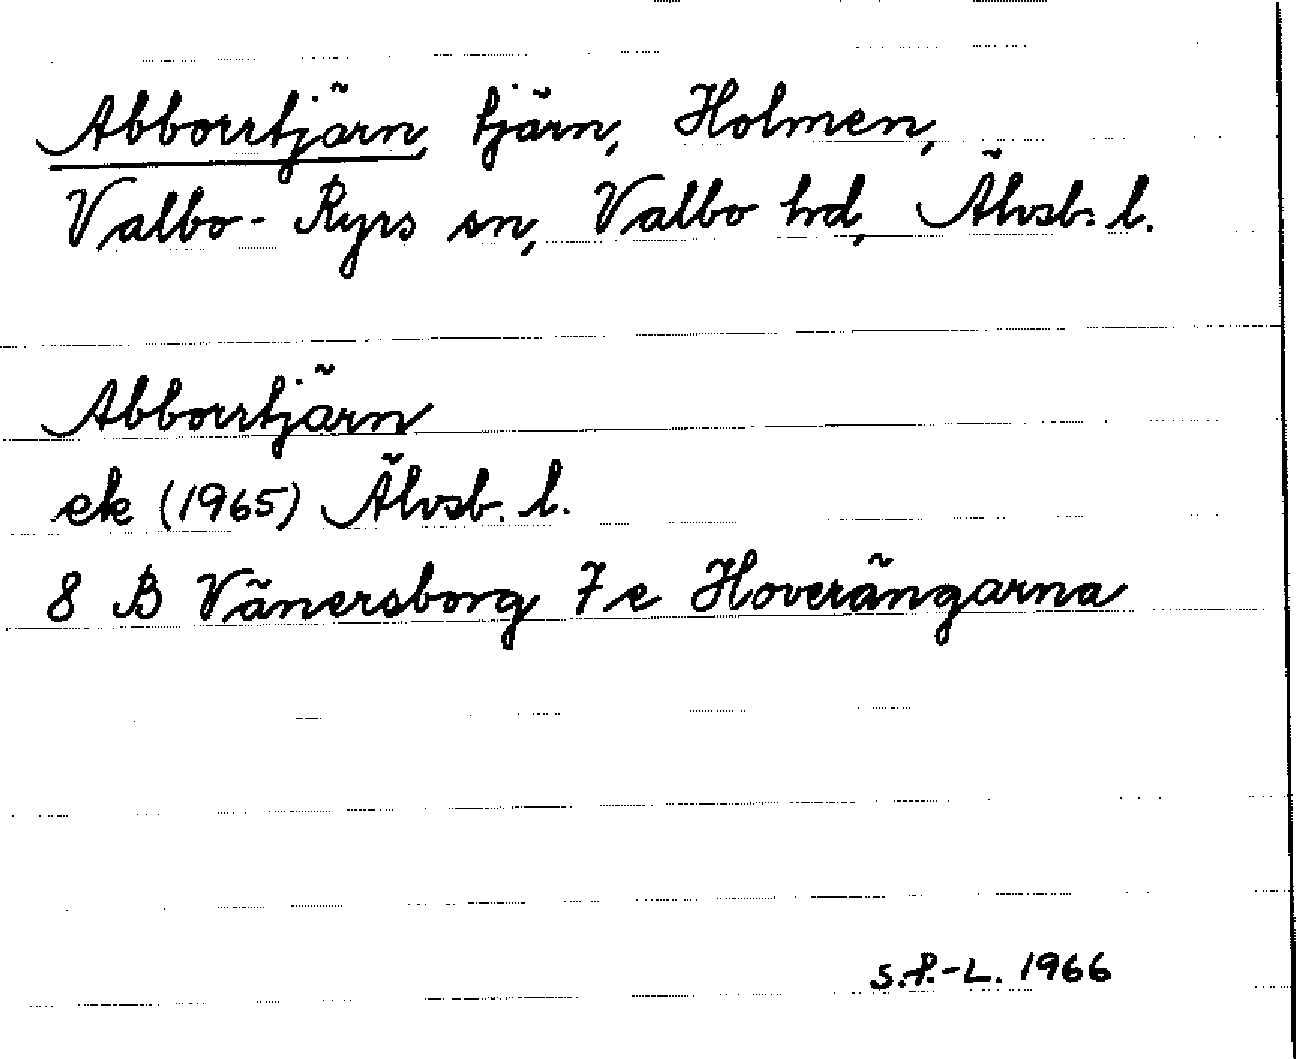 Abborrtjärn, tjärn, Holmen,
Valbo-Ryrs sn, Valbo hd, Älvsb. l.
Abborrtjärn
ek (1965) Älvsb. l.
8 B Vänersborg 7e Hoverängarna
S.F.-L. 1966